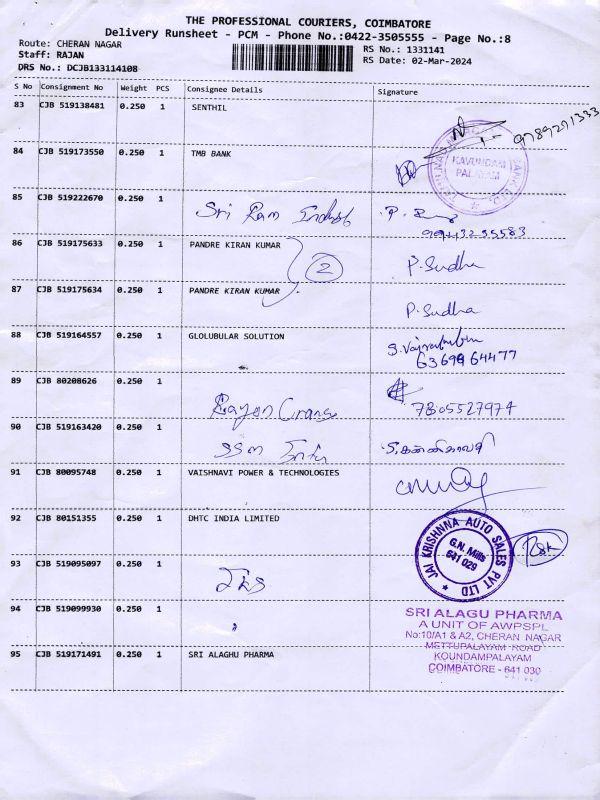 THE PROFESSIONAL COURIERS, COIMBATORE
Delivery Runsheet - PCM - Phone No.:0422-3505555 - Page No.:8
Route: CHERAN NAGAR
RS No.: 1331141
Staff: RAJAN
RS Date: 02-Mar-2024
DRS No.: DCJB133114108
S No Consignment No Weight PCS Consignee Details Signature
83 CJB 519138481 0.250 1 SENTHIL
9789271333
84 CJB 519173550 0.250 1 TMB BANK
KAVUNDAM
PALAYAM
85 CJB 519222670 0.250 1 Sri Ram
P.
86 CJB 519175633 0.250 1 PANDRE KIRAN KUMAR P. Sudha
2
87 CJB 519175634 0.250 1 PANDRE KIRAN KUMAR P. Sudha
88 CJB 519164557 0.250 1 GLOLUBULAR SOLUTION
6369964477
89 CJB 80208626 0.250 1
7805527974
90 CJB 519163420 0.250 1 SSM
91 CJB 80095748 0.250 1 VAISHNAVI POWER & TECHNOLOGIES
92 CJB 80151355 0.250 1 DHTC INDIA LIMITED
JAI KRISHNNA AUTO SALES PVT LTD
G.N. Mills
641 029
93 CJB 519095097 0.250 1
94 CJB 519099930 0.250 1 "
SRI ALAGU PHARMA
A UNIT OF AWPSPL
No:10/A1 & A2, CHERAN NAGAR
METTUPALAYAM ROAD
KOUNDAMPALAYAM
COIMBATORE - 641 030
95 CJB 519171491 0.250 1 SRI ALAGHU PHARMA